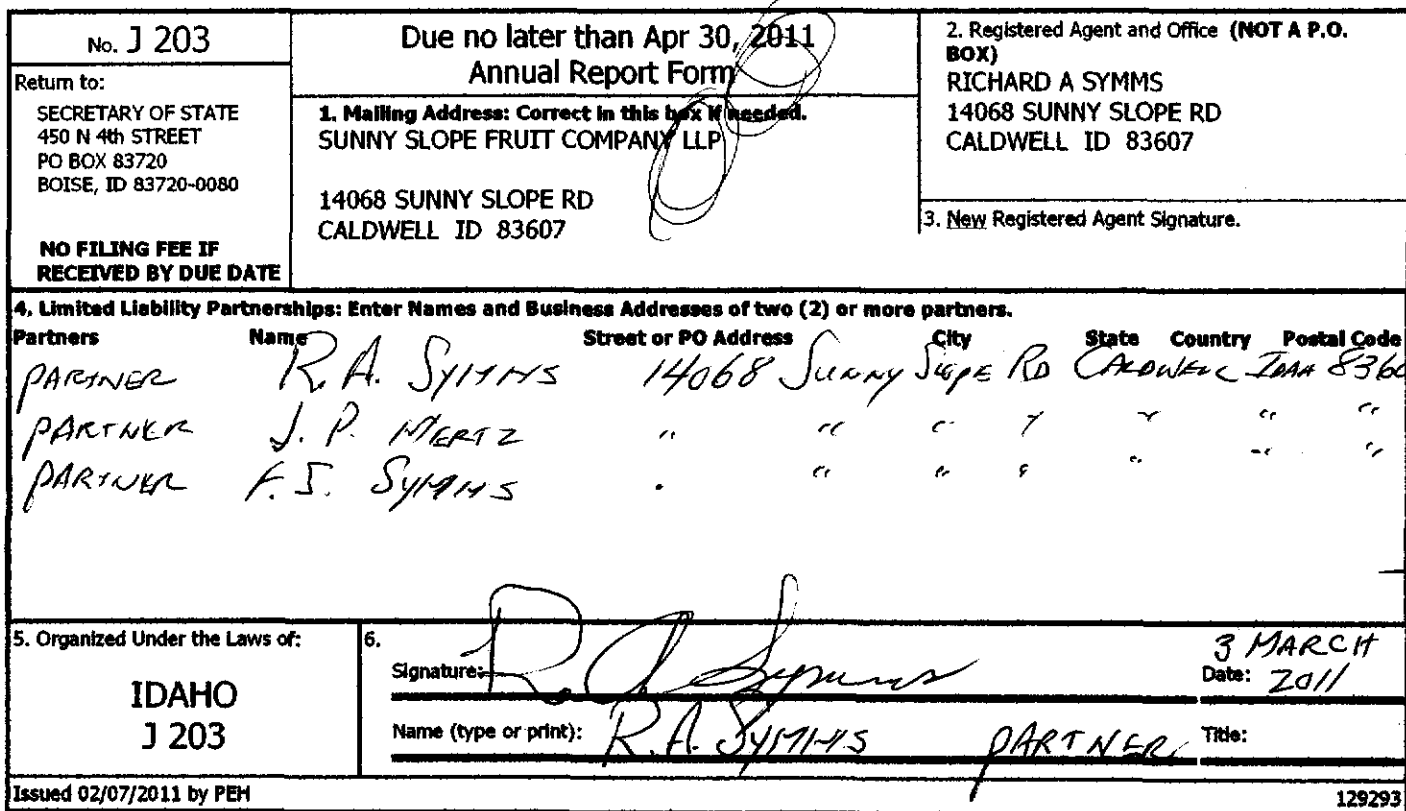 No. J 203
Return to:
SECRETARY OF STATE
450 N 4th STREET
PO BOX 83720
BOISE, ID 83720-0080
NO FILING FEE IF
RECEIVED BY DUE DATE
Due no later than Apr 30, 2011
Annual Report Form
1. Mailing Address: Correct in this box if needed.
SUNNY SLOPE FRUIT COMPANY LLP
14068 SUNNY SLOPE RD
CALDWELL ID 83607
2. Registered Agent and Office (NOT A P.O.
BOX)
RICHARD A SYMMS
14068 SUNNY SLOPE RD
CALDWELL ID 83607
3. New Registered Agent Signature.
4. Limited Liability Partnerships: Enter Names and Business Addresses of two (2) or more partners.
Partners Name Street or PO Address City State Country Postal Code
PARTNER R. A. SYMMS 14068 SUNNY SLOPE RD CALDWELL IDAH 8360
PARTNER J. P. MERTZ " " " " " " "
PARTNER F. S. SYMMS " " " " " " "
5. Organized Under the Laws of:
IDAHO
J 203
6.
Signature: R A Symms
3 MARCH
Date: 2011
Name (type or print): R. A. SYMMS PARTNER Title:
Issued 02/07/2011 by PEH
129293